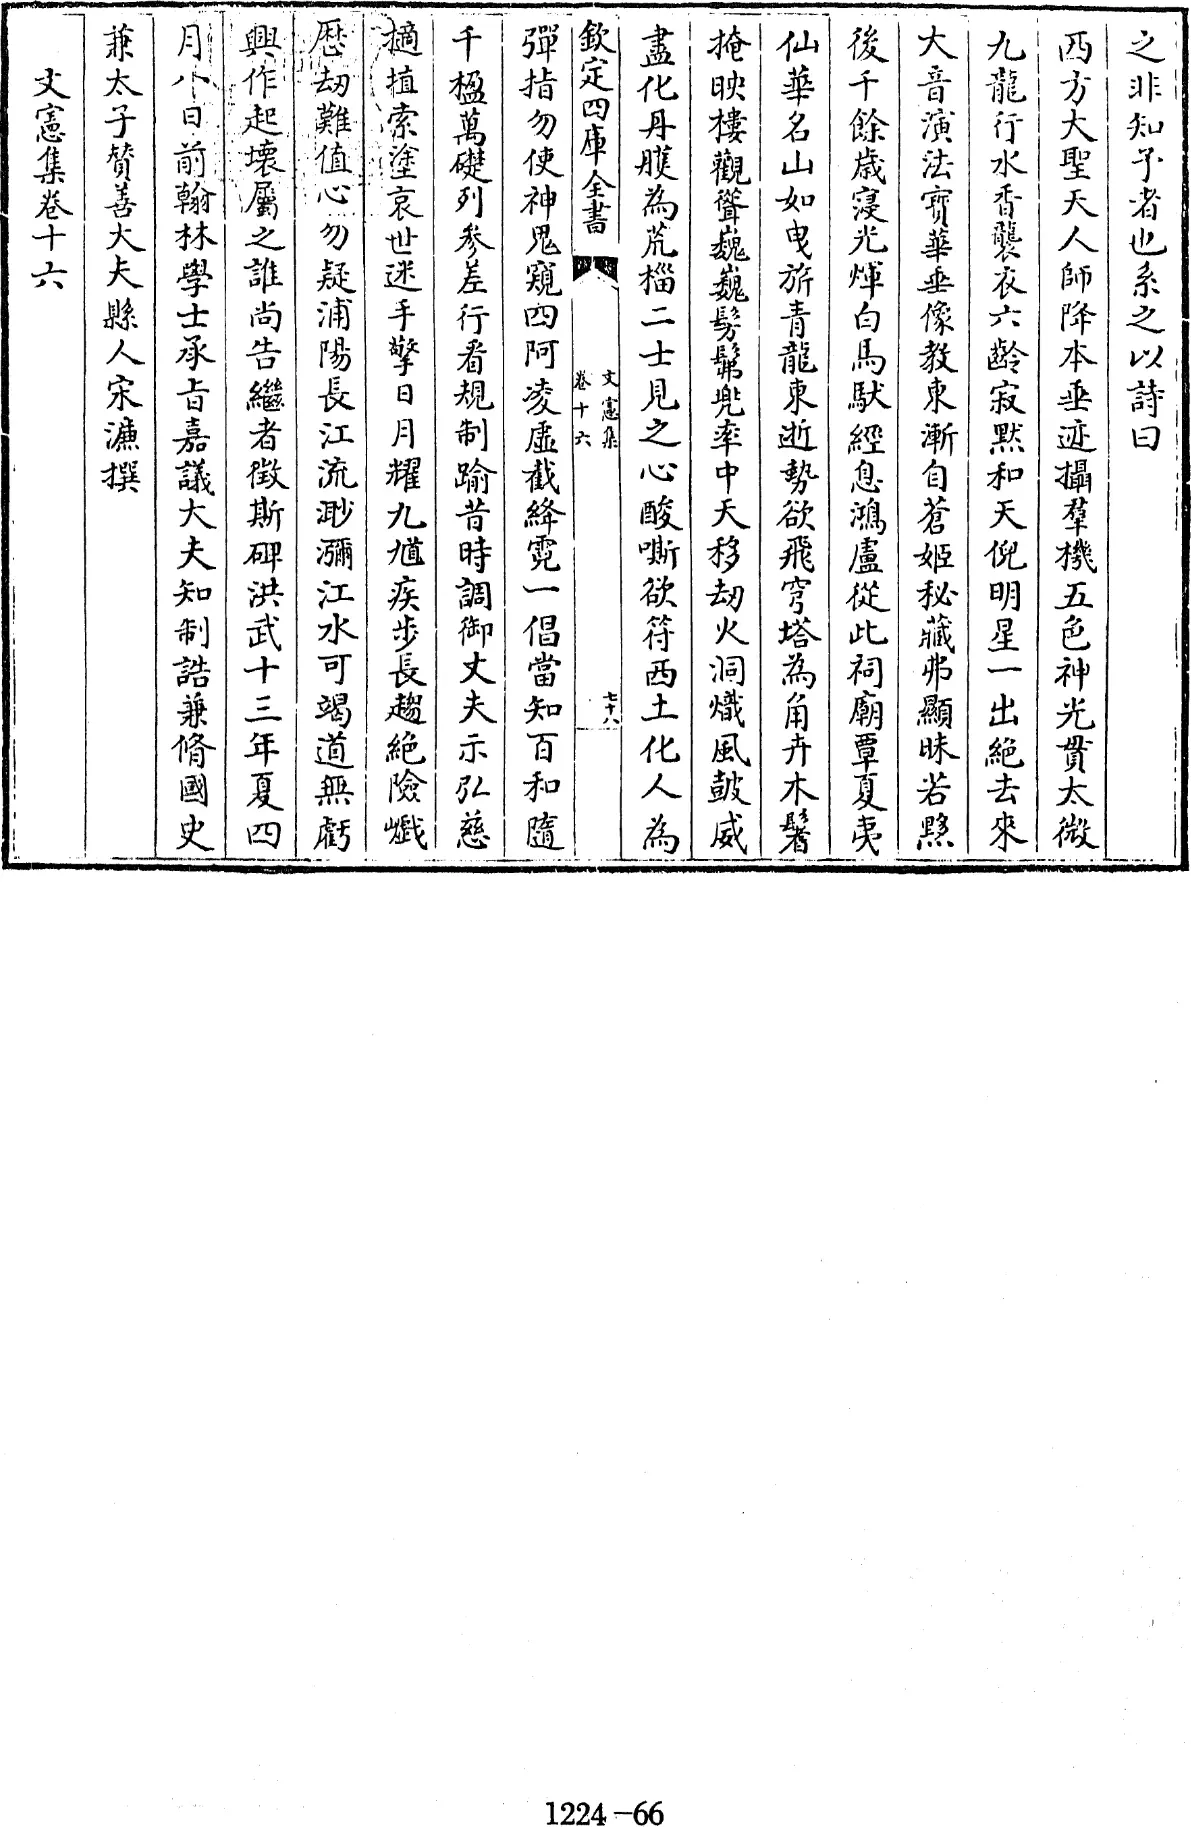 之非知予者也系之以詩曰
西方大聖天人師降本垂迹攝羣機五色神光貫太微
九龍行水香襲衣六齡寂默和天倪明星一出絶去來
大音演法寳華垂像教東漸自蒼姬秘藏弗顯昧若黟
後千餘歲寖光煇白馬䭾經息鴻盧從此祠廟覃夏夷
仙華名山如曳旂青龍東逝勢欲飛穹塔為角卉木鬐
掩映樓觀聳巍巍髣髴兜率中天移劫火洞熾風鼓威
盡化丹雘為荒榴二士見之心酸嘶欲符西土化人為
欽定四庫全書
文憲集
卷十六
七十八
彈指勿使神鬼窺四阿凌虛截絳霓一倡當知百和隨
千楹萬礎列參差行看規制踰昔時調御丈夫示弘慈
擿埴索塗哀世迷手擎日月耀九馗疾步長趨絶險巇
歴劫難值心勿疑浦陽長江流渺瀰江水可竭道無虧
興作起壞屬之誰尚告繼者徴斯碑洪武十三年夏四
月八日前翰林學士承旨嘉議大夫知制誥兼脩國史
兼太子贊善大夫縣人宋濂撰
文憲集卷十六
1224-66